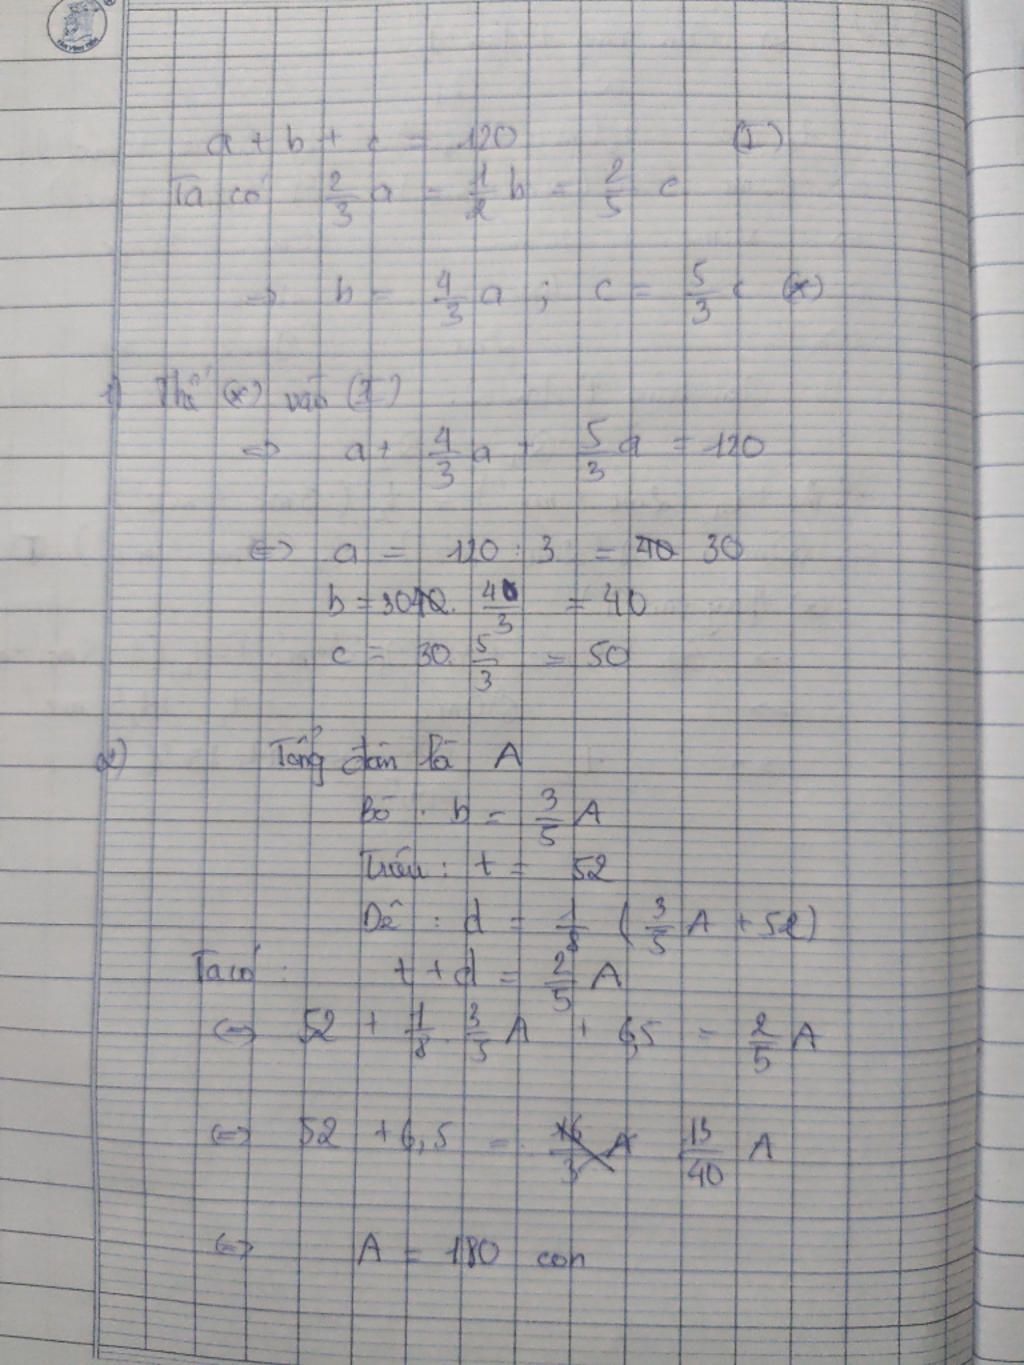 a + b + c = 120 (I)
Ta có 2/3 a = 1/2 b = 2/5 c
=> b = 4/3 a ; c = 5/3 c (*)
1) Thế (*) vào (I)
<=> a + 4/3 a + 5/3 a = 120
<=> a = 120 : 3 = 30
b = 30 . 4/3 = 40
c = 30 . 5/3 = 50
2) Tổng đàn là A
Bò : b = 3/5 A
Trâu : t = 52
Dê : d = 1/8 ( 3/5 A + 52 )
Ta có : t + d = 2/5 A
<=> 52 + 1/8 . 3/5 A + 6,5 = 2/5 A
<=> 52 + 6,5 = 13/40 A
<=> A = 180 con